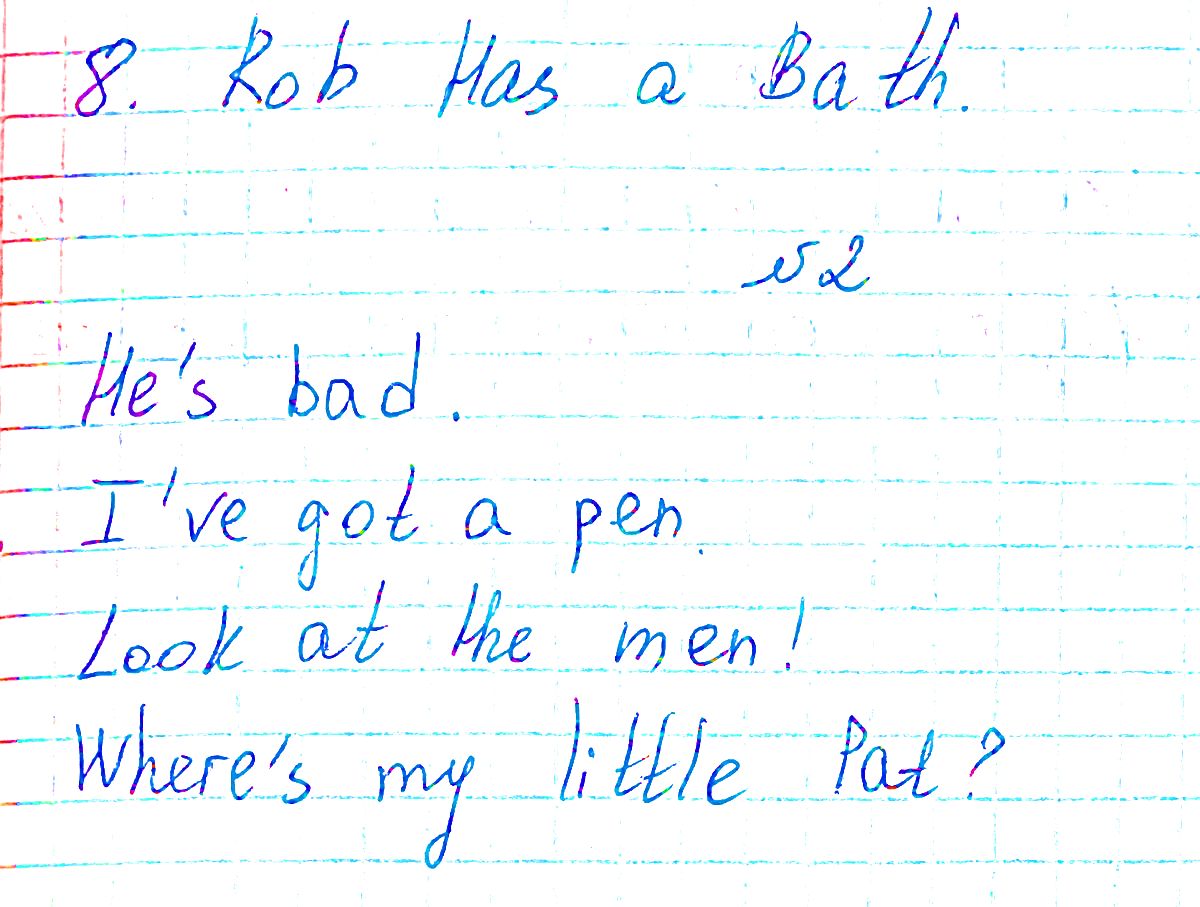 8. Rob Has a Bath.
v2
He's bad.
I've got a pen.
Look at the men!
Where's my little Pat?